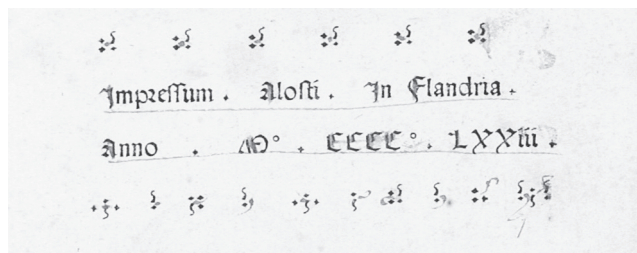 Impreſſum . Aloſti . In Flandria .
Anno . M° . CCCC° . LXXiii .